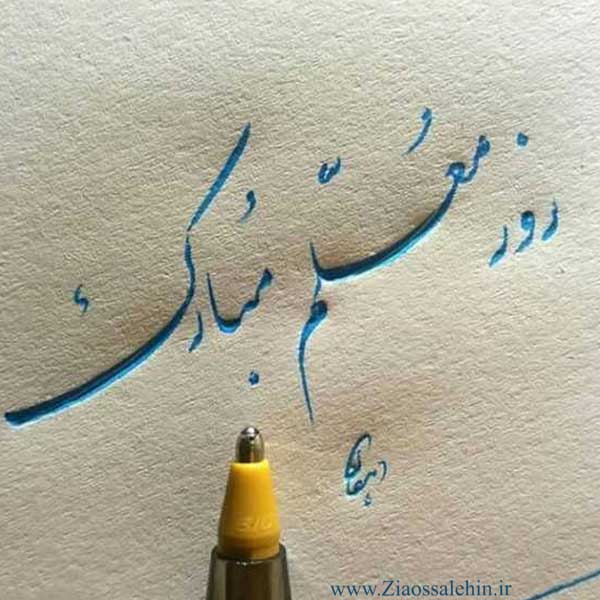 روز مُعلّم مُبارک
دهقان
www.Ziaossalehin.ir